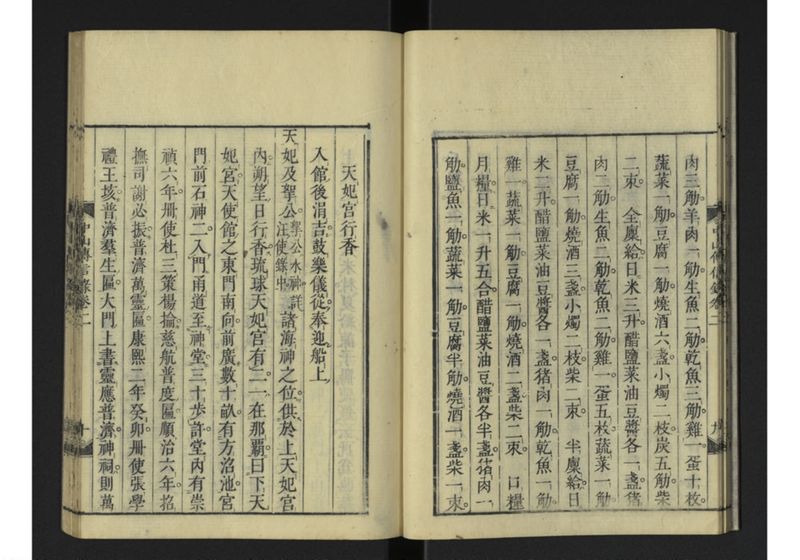 肉三觔羊肉一觔生魚二觔乾魚三觔雞一蛋十枚
蔬菜一觔豆腐一觔燒酒六盞小燭二枝炭五觔柴
二束　全廩給日米三升醋鹽菜油豆醬各一盞猪
肉二觔生魚二觔乾魚一觔雞一蛋五枚蔬菜一觔
豆腐一觔燒酒三盞小燭二枝柴一束　半廩給日
米二升醋鹽菜油豆醬各一盞猪肉一觔乾魚一觔
雞一蔬菜一觔豆腐一觔燒酒一盞柴二束　口糧
月糧日米一升五合醋鹽菜油豆醬各半盞猪肉一
觔鹽魚一觔蔬菜一觔豆腐半觔燒酒一盞柴一束
中山傳信錄卷二
九
天妃宮行香
入館後涓吉鼓樂儀從奉迎船上
天妃及挐公挐公水神詳註使錄中諸海神之位供於上天妃宮
內朔望日行香琉球天妃宮有二一在那覇曰下天
妃宮天使館之東門南向前廣數十畝有方沼池宮
門前石神二入門甬道至神堂三十歩許堂內有崇
禎六年冊使杜三策楊掄慈航普度匾順治六年招
撫司謝必振普濟萬靈匾康熙二年癸卯冊使張學
禮王垓普濟羣生匾大門上書靈應普濟神祠則萬
中山傳信錄卷二
十